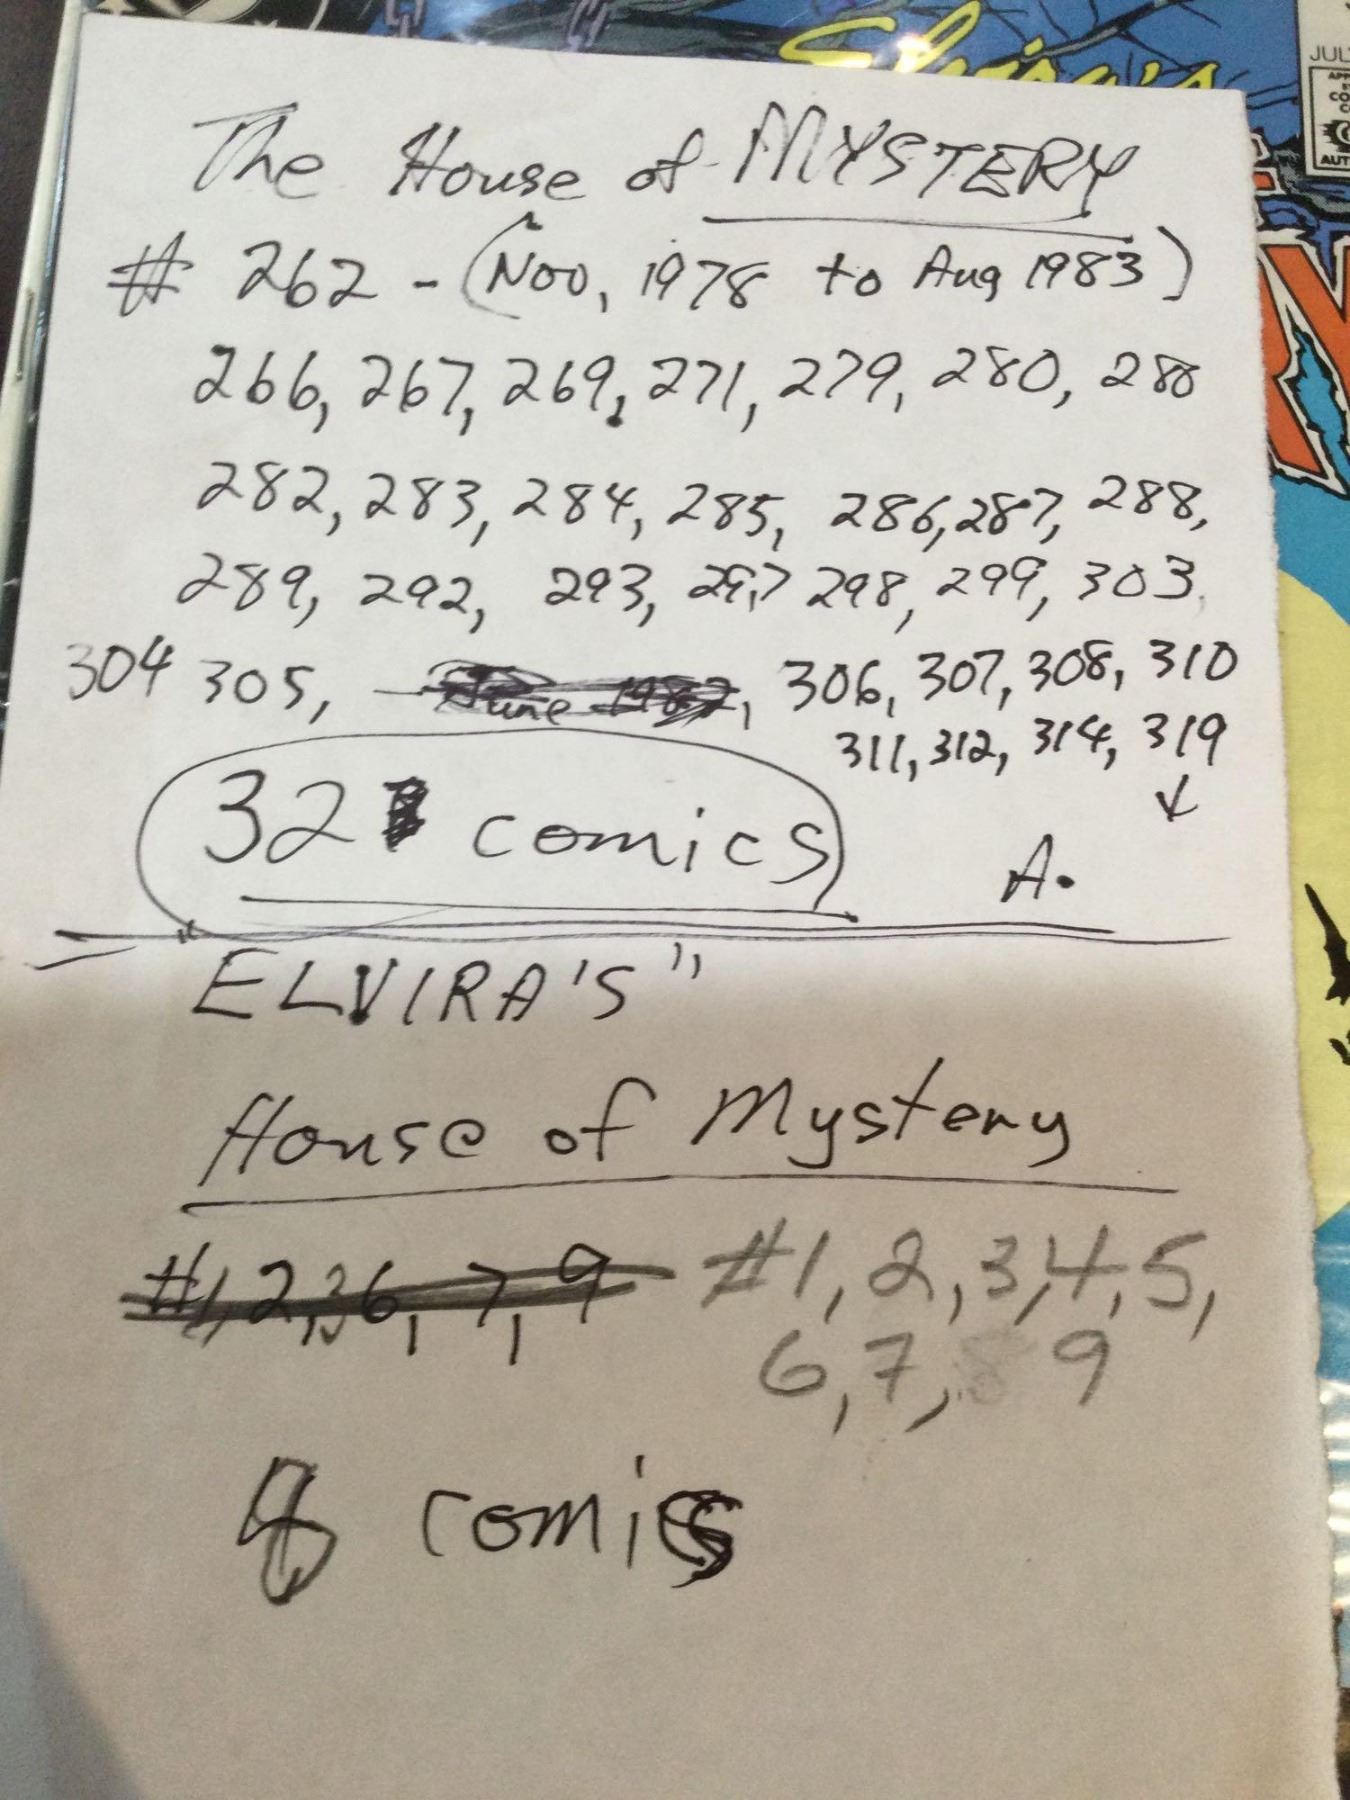 Elvira's
JULY
The House of MYSTERY
# 262 - (Nov, 1978 to Aug 1983)
266, 267, 269, 271, 279, 280, 280
282, 283, 284, 285, 286, 287, 288,
289, 292, 293, 297 298, 299, 303,
304 305, June 1982, 306, 307, 308, 310
311, 312, 314, 319
32 comics
A.
"ELVIRA'S"
House of Mystery
#1, 2, 3 6, 7, 9 #1, 2, 3, 4, 5,
6, 7, 8 9
8 comics